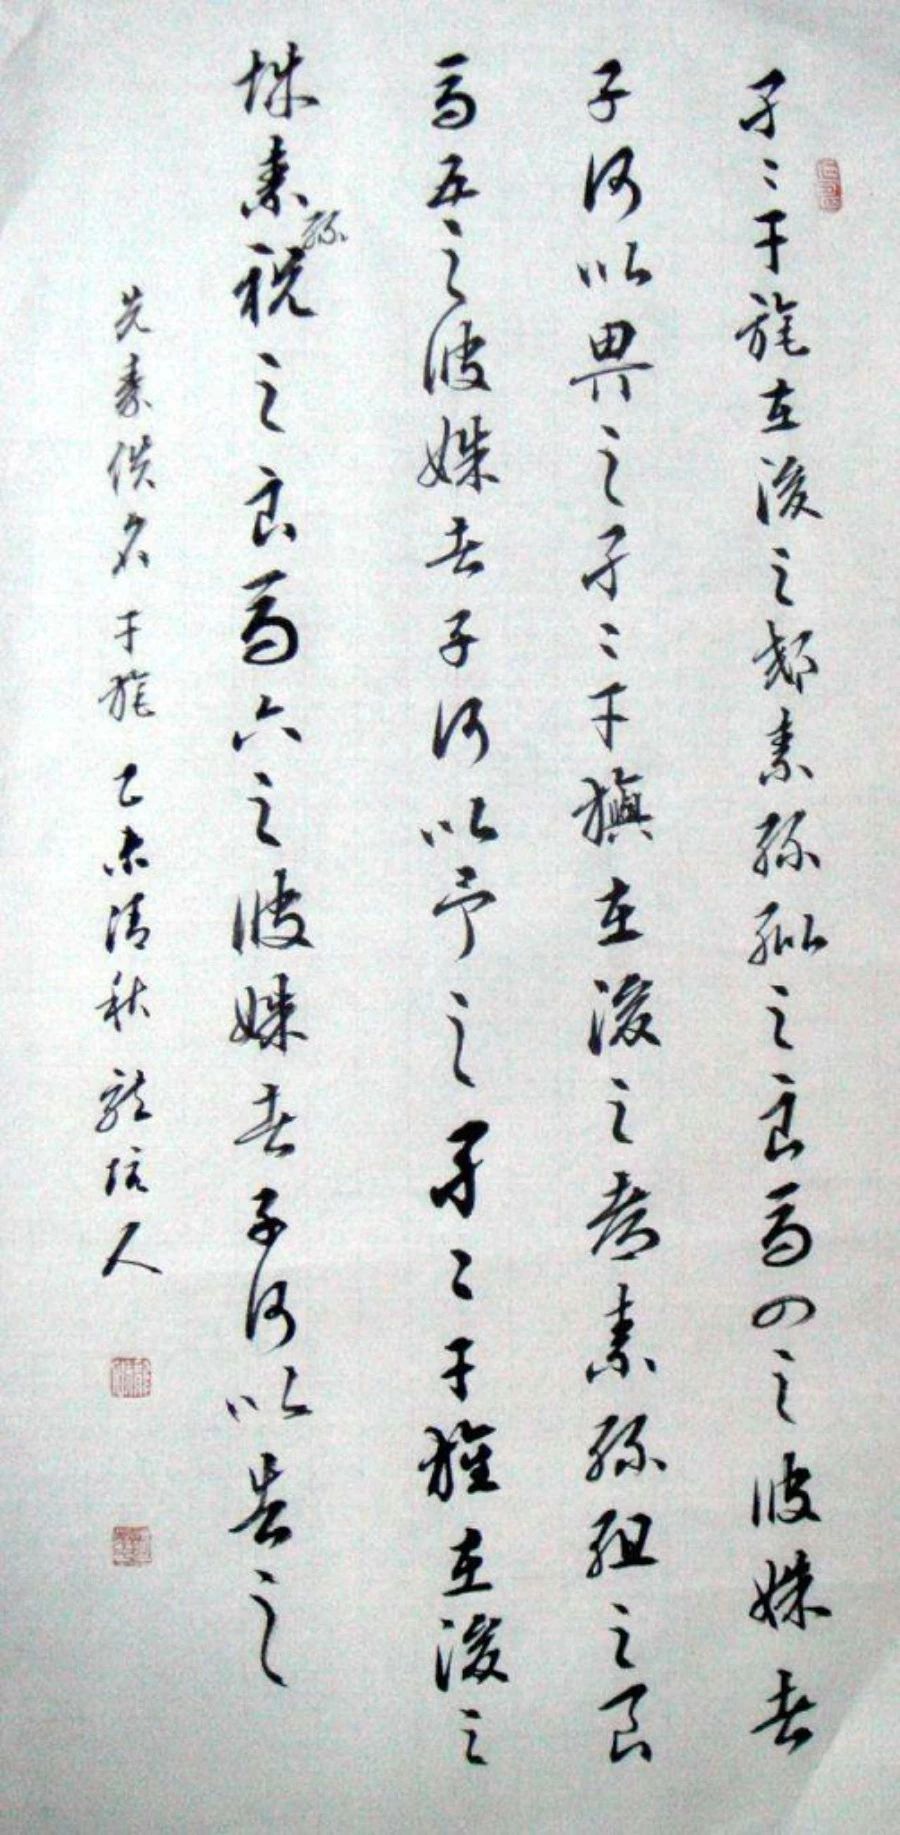 孑〻干旄在浚之郊素絲紕之良馬四之彼姝者
子何以畀之孑〻干旟在浚之都素絲組之良
馬五之彼姝者子何以予之孑〻干旌在浚之
城素絲祝之良馬六之彼姝者子何以告之
先秦佚名 干旄 乙未清秋 龍坑人